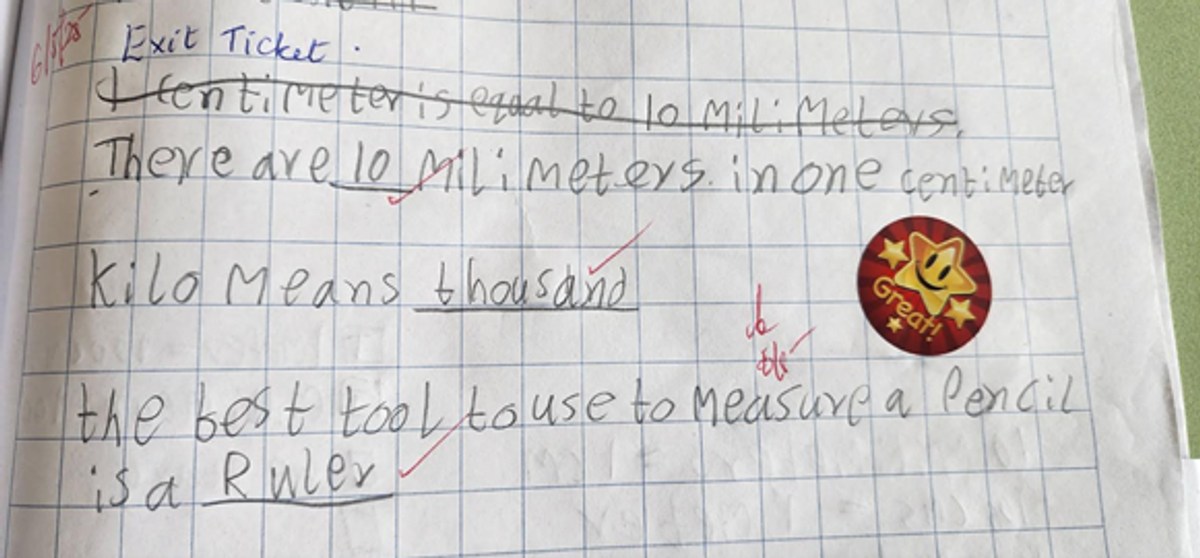 6/5/25
Exit Ticket.
1 Centimeter is equal to 10 MiliMeters.
There are 10 MiliMeters. in one centimeter
kilo Means thousand
Great!
the best tool to use to Measure a Pencil
is a Ruler